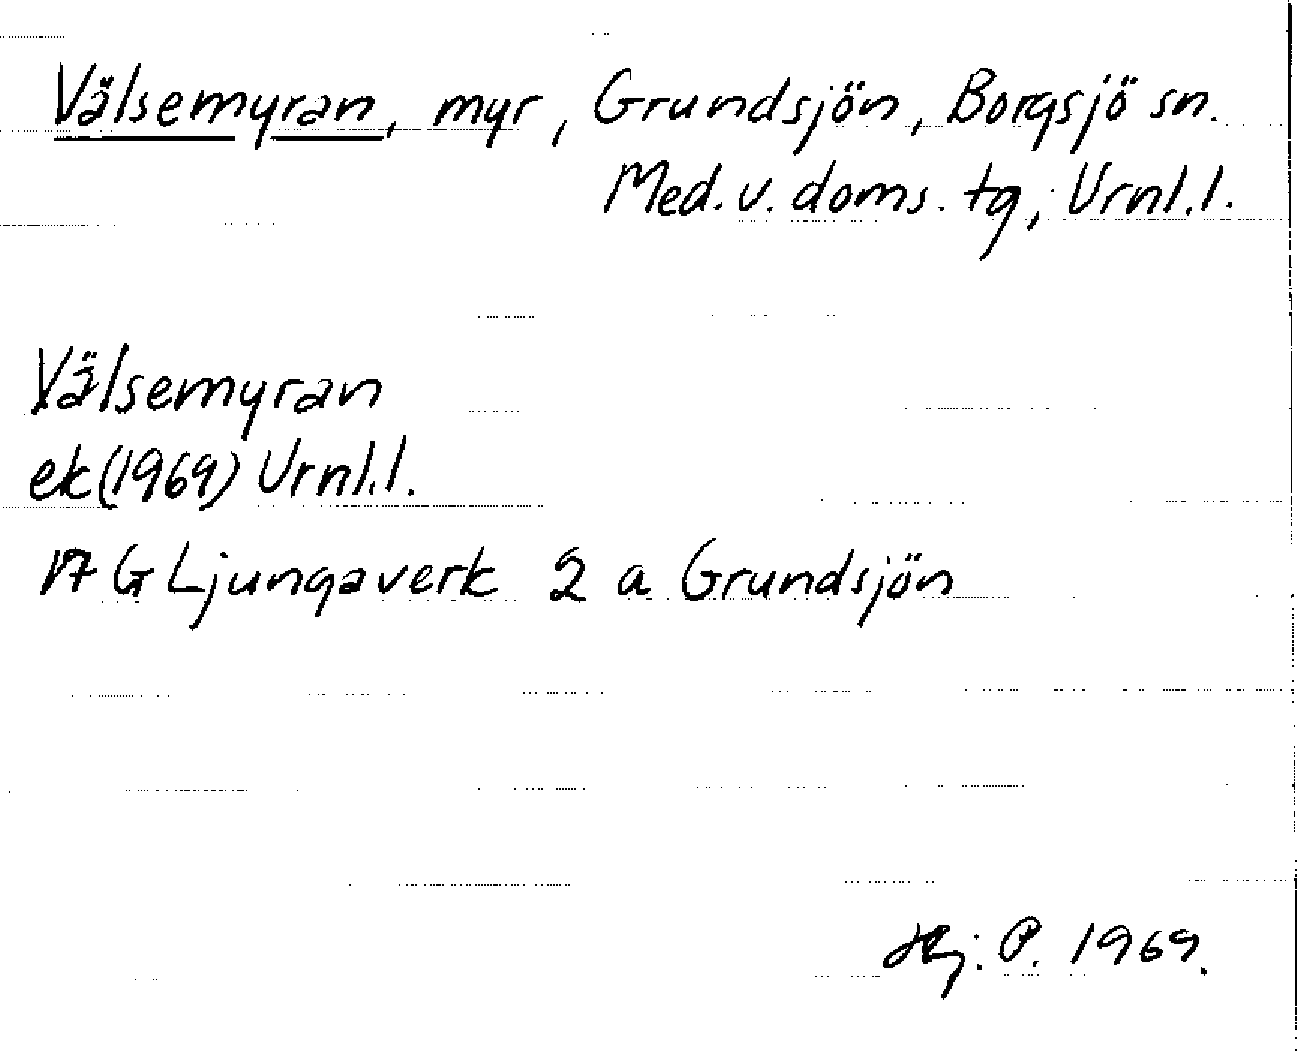 Välsemyran, myr, Grundsjön, Borgsjö sn.
Med. v. doms. tg, Vrnl.l.
Välsemyran
ek(1969) Vrnl.l.
17 G Ljungaverk 2 a Grundsjön
Hj. P. 1969.